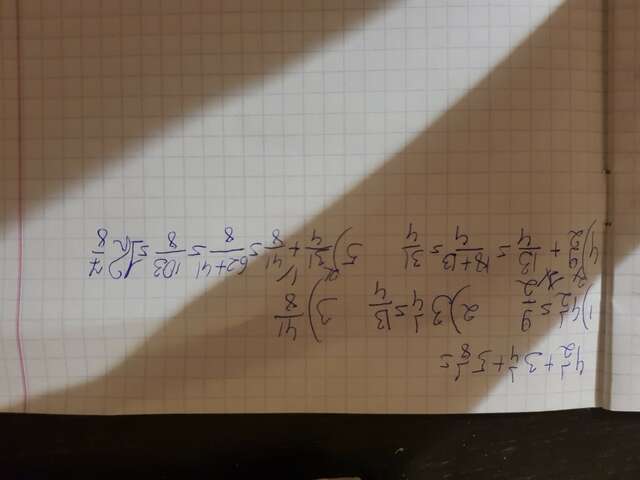 4 1/2 + 3 1/4 + 5 1/8 =
1) 4 1/2 = 9/2 2) 3 1/4 = 13/4 3) 41/8
4) 9/2 + 13/4 = 18+13/4 = 31/4 5) 31/4 + 41/8 = 62+41/8 = 103/8 = 12 7/8